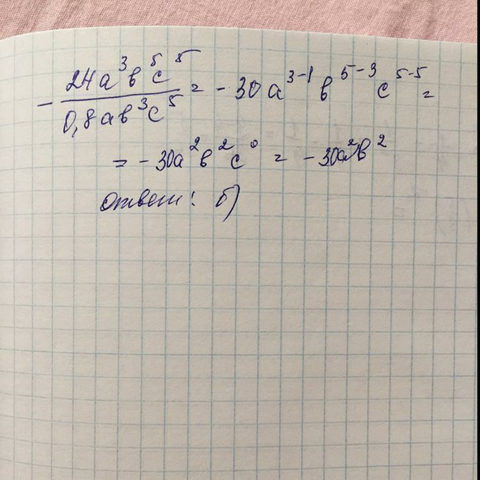 - 24a³в⁵c⁵ / 0,8aв³c⁵ = - 30a³⁻¹в⁵⁻³c⁵⁻⁵ =
= - 30a²в²c⁰ = - 30a²в²
Ответ: б)